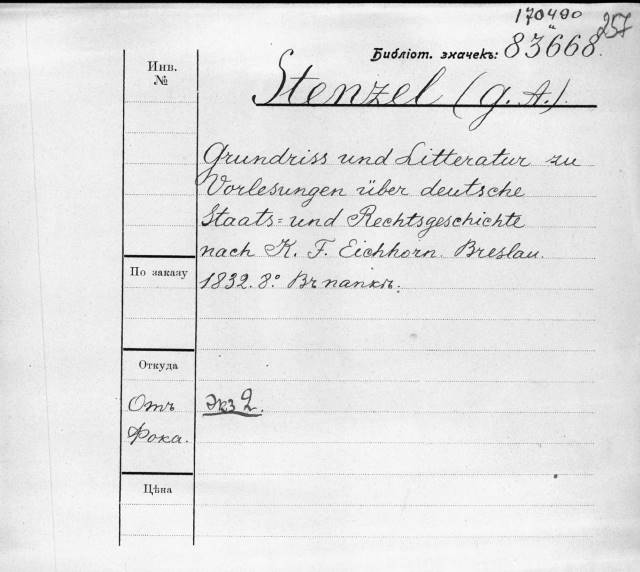 170490
257
Библіот. значекъ: 83668
Инв.
№
Stenzel (G. A.).
Grundriss und Litteratur zu
Vorlesungen über deutsche
Staats= und Rechtsgeschichte
nach K. F. Eichhorn. Breslau.
1832. 8.° Въ папкѣ.
По заказу
Откуда
Отъ
Фока.
Экз 2.
Цѣна